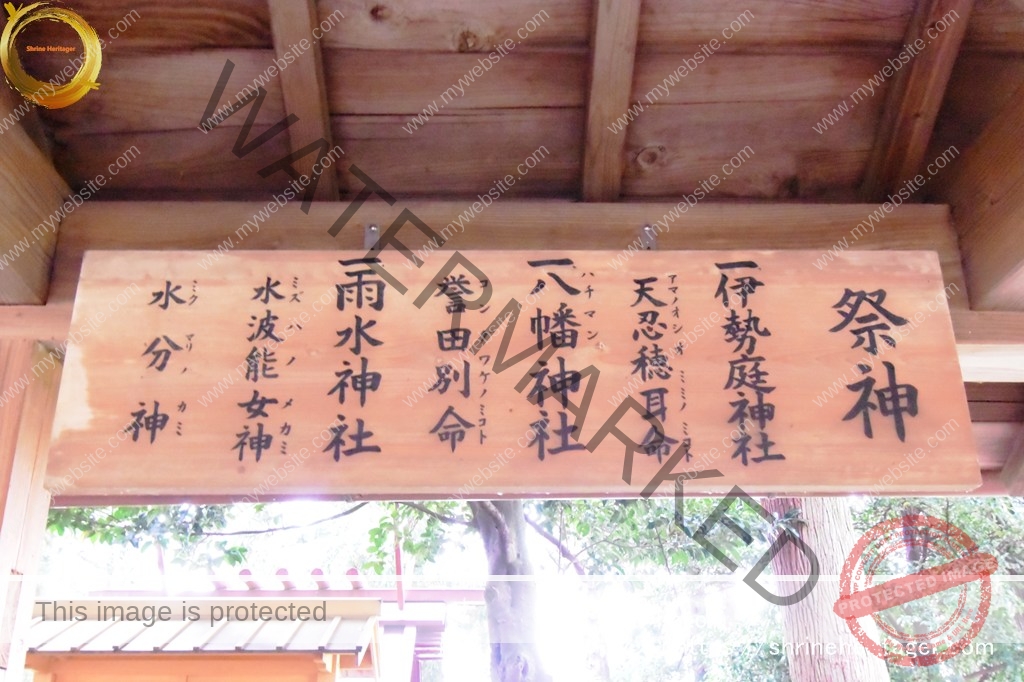 祭神
一伊勢庭神社
天忍穂耳命
アマノオシホミミノミコト
一八幡神社
ハチマン
誉田別命
ホンダワケノミコト
一雨水神社
水波能女神
ミズハノメカミ
水分神
ミクマリノカミ
Shrine Heritager
WATERMARKED
www.mywebsite.com
This image is protected
PROTECTED IMAGE